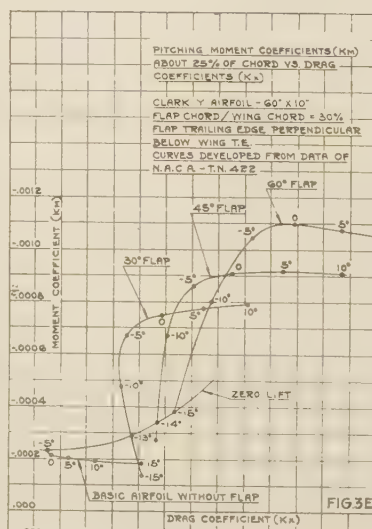 PITCHING MOMENT COEFFICIENTS (KM)
ABOUT 25% OF CHORD VS. DRAG
COEFFICIENTS (Kx)
CLARK Y AIRFOIL - 60" X 10"
FLAP CHORD/WING CHORD = 30%
FLAP TRAILING EDGE PERPENDICULAR
BELOW WING T.E.
CURVES DEVELOPED FROM DATA OF
N.A.C.A. - T.N. 422
60° FLAP
-.0012
45° FLAP
0
5°
-.0010
30° FLAP
-5°
-5°
0
5°
10°
-.0008
MOMENT COEFFICIENT (KM)
0
5°
-10°
10°
-5°
-10°
-.0006
-10°
ZERO LIFT
-.0004
-15°
-14°
-13°
-5°
-.0002
0
5°
10°
15°
-15°
BASIC AIRFOIL WITHOUT FLAP
.000
FIG3E
DRAG COEFFICIENT (Kx)